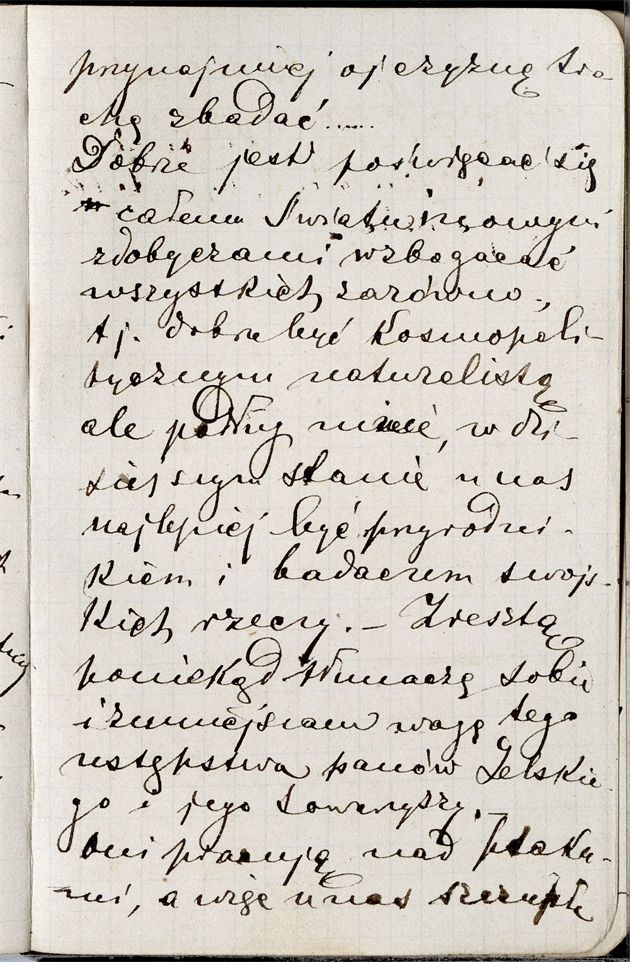 przynajmniej ojczyznę tro-
chę zbadać.....
Dobrze jest poświęcać się
całemu Światu i nowymi
zdobyczami wzbogacać
wszystkich zarówno,
t j. dobrze być Kosmopoli-
tycznym naturalistą
ale podług mnie, w dzi-
siejszym stanie u nas
najlepiej być przyrodni-
kiem i badaczem swojs-
kich rzeczy. – Zresztą
poniekąd tłumaczę sobie
i zmniejszam wagę tego
ustępstwa panów Jelskie
go i jego towarzyszy. –
oni pracują nad ptaka-
mi, a więc u nas szczupłe